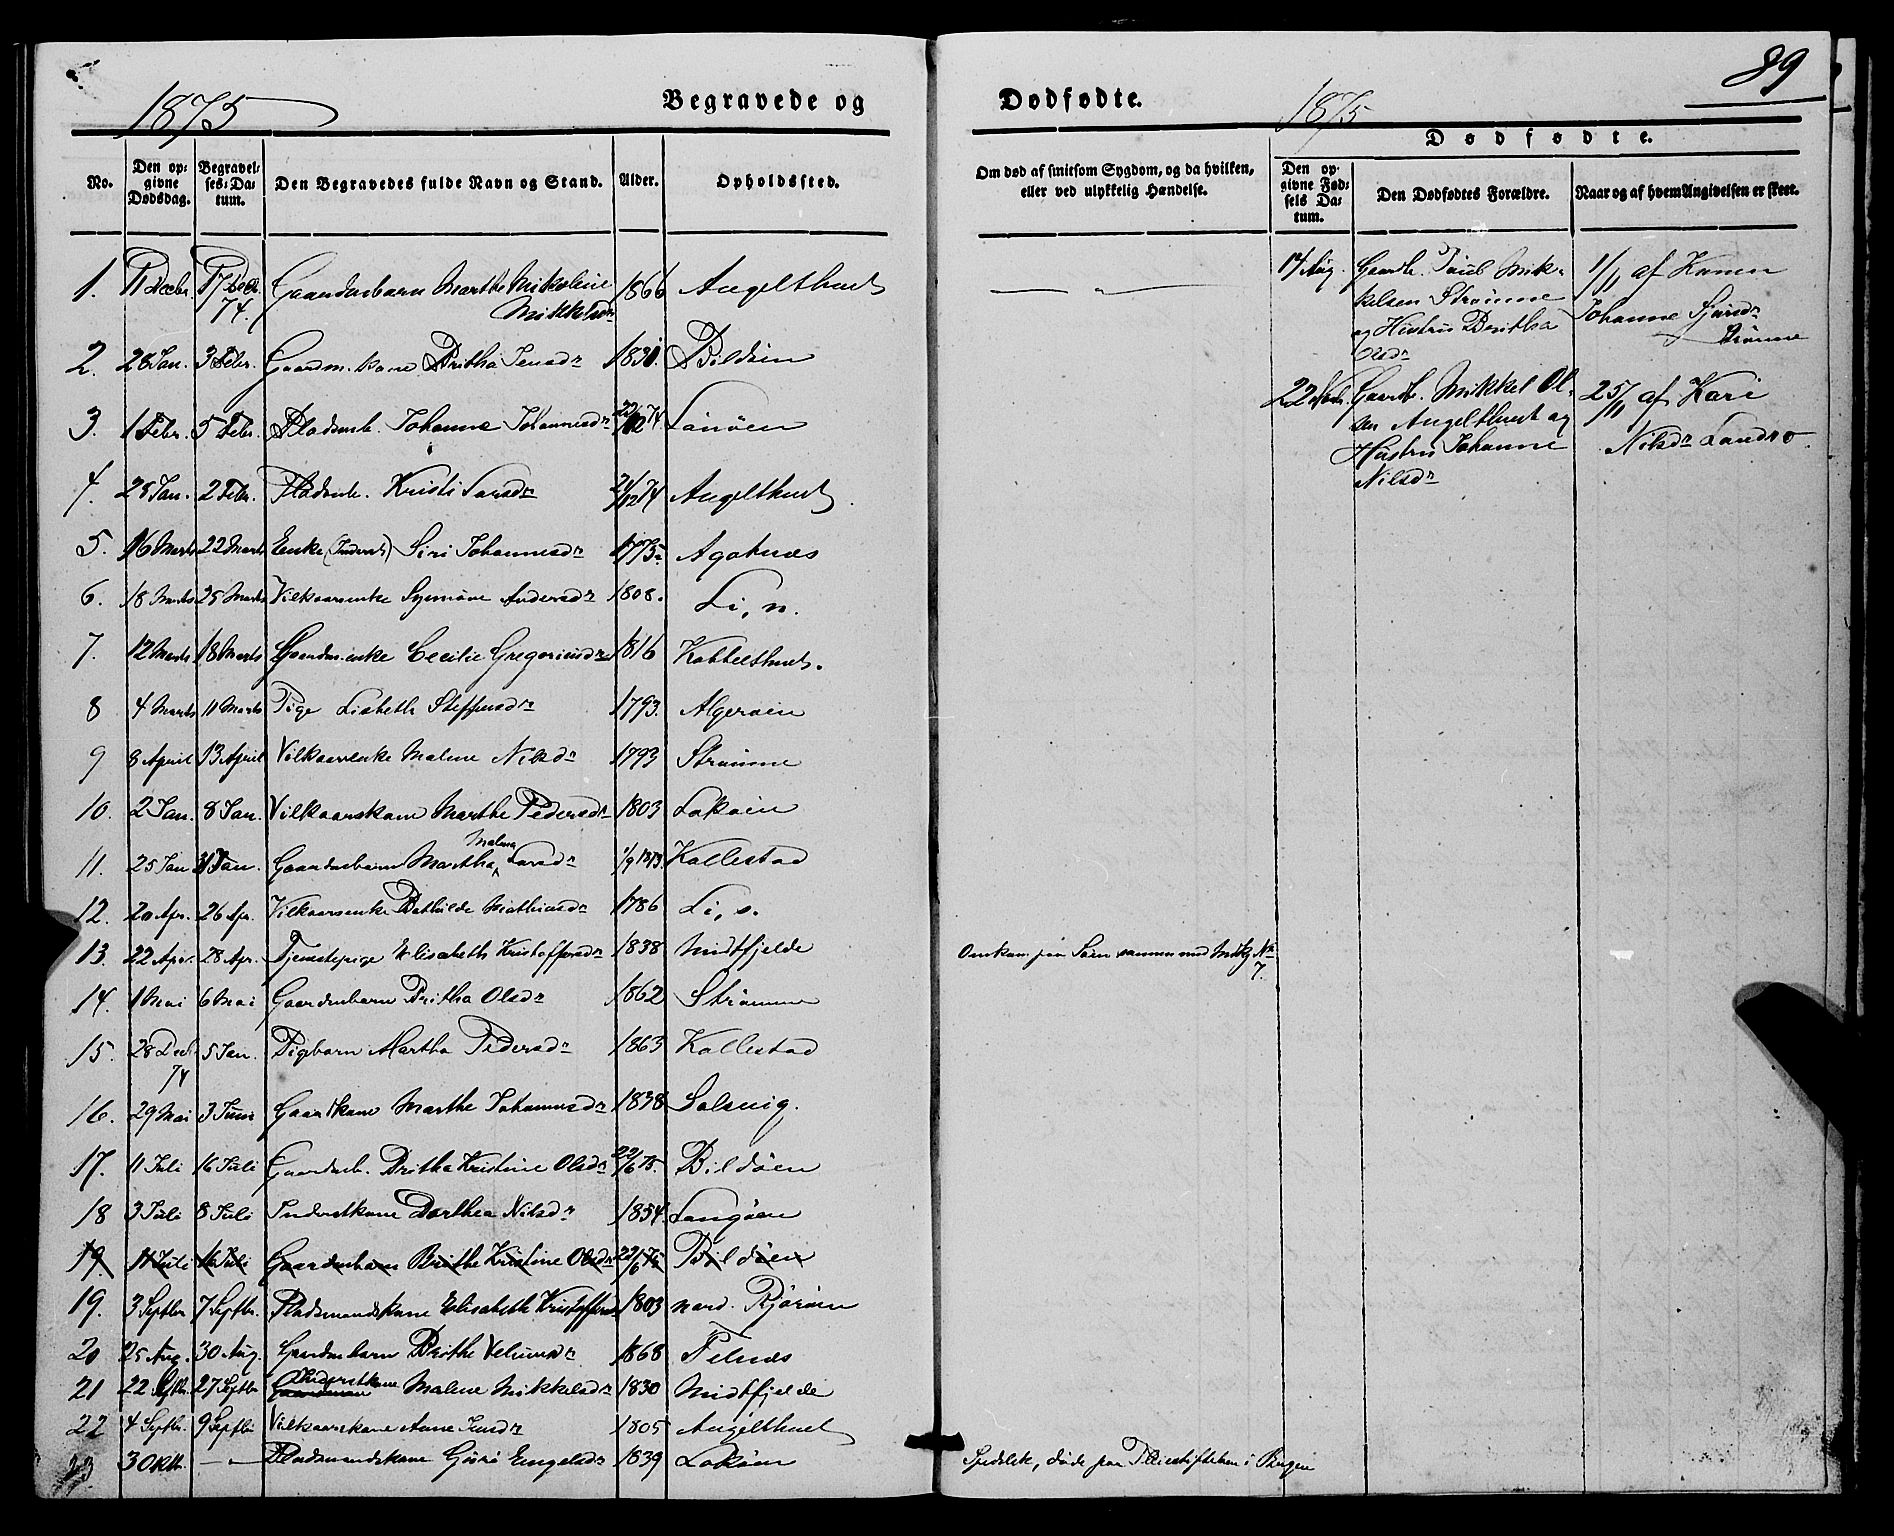 1875
Begravede og
Dødfødte.
1875
89
No.
Den opgivne Dødsdag.
Begravelses-Datum.
Den Begravedes fulde Navn og Stand.
Alder.
Opholdssted.
Om død af smitsom Sygdom, og da hvilken, eller ved ulykkelig Hændelse.
Dødfødte.
Den opgivne Fødsels Datum.
Den Dødfødtes Forældre.
Naar og af hvem Angivelsen er skeet.
1. 11 Decbr. 17 Decbr. 74. Gaardmbarn Marthe Mikoline Mikkelsdr 1866 Angelthvet
2. 28 Jan. 3 Febr. Gaardm. kone Britha Jensdr 1831. Bildøen
3. 1 Febr. 5 Febr. Pladsmb. Johanne Johannesdr 22/12 74. Lønøen
4. 25 Jan. 2 Febr. Pladsmb. Kristi Larsdr 21/12 74 Angelthvet
5. 16 Marts 22 Marts Enke (Inderst) Siri Johannesdr 1775. Agotnæs
6. 18 Marts 25 Marts Vilkaarsenke Synnøve Andersdr 1808. Li, n.
7. 12 Marts 18 Marts Gaardm.enke Cecilie Gregoriusdr 1816 Kobbelthvet.
8 4 Marts 11 Marts Pige Lisbeth Steffensdr 1793. Algerøen
9 8 April 13 April Vilkaarsenke Malene Nilsdr 1793 Strømme
10. 2 Jan. 8 Jan. Vilkaarskone Marthe Pedersdr 1803 Lokøen
11. 25 Jan 31 Jan. Gaardmbarn Martha Malene Larsdr 1/9 1873. Kallestad
12. 20 Apr. 26 Apr. Vilkaarsenke Bothilde Mathiasdr 1786 Li, s.
13. 22 Apr. 28 Apr. Tjenestepige Elisabeth Kristoffersdr 1838 Midtfjelde
Omkom paa Søen sammen med Mdkj. No 7.
14. 1 Mai 6 Mai Gaardmbarn Britha Olsdr 1862 Strømme
15. 28 Dec 74 5 Jan. Pigbarn Martha Pedersdr 1863 Kallestad
16. 29 Mai 3 Juni Gaardkone Marthe Johannesdr 1838 Solsvig.
17. 11 Juli 16 Juli Gaardmb. Britha Kristine Olsdr 22/6 75. Bildøen
18 3 Juli 8 Juli Inderstkone Dorthea Nilsdr 1854. Langøen
19. 11 Juli 16 Juli Gaardmbarn Brithe Kristine Olsdr 22/6 75 Bildøen
19. 3 Septbr 7 Septbr. Pladsmandskone Elisabeth Kristoffersdr 1803 nord. Bjørøen
20 25 Aug. 30 Aug. Gaardmbarn Brithe Velumsdr 1868 Telnæs
21 22 Septbr. 27 Septbr Gaardman Inderstkone Malene Mikkelsdr 1830 Midtfjelde
22 4 Septbr. 9 Septbr Vilkaarskone Anne Jensdr 1805 Angelthvet
23 30 Okt. — Pladsmandskone Guro Engelsdr 1839 Lokøen
Spedalsk, døde paa Pleiestiftelsen i Bergen
14 Aug. Gaardb. Poul Mikkelsen Strømme og Hustru Beritha Olsdr
1/11 af Karen Johanne Sjursdr Strømme
22 Gaardb. Mikkel Olsen Angelthvet og Hustru Johanne Nilsdr
25/11 af Kari Nilsdr Landro.